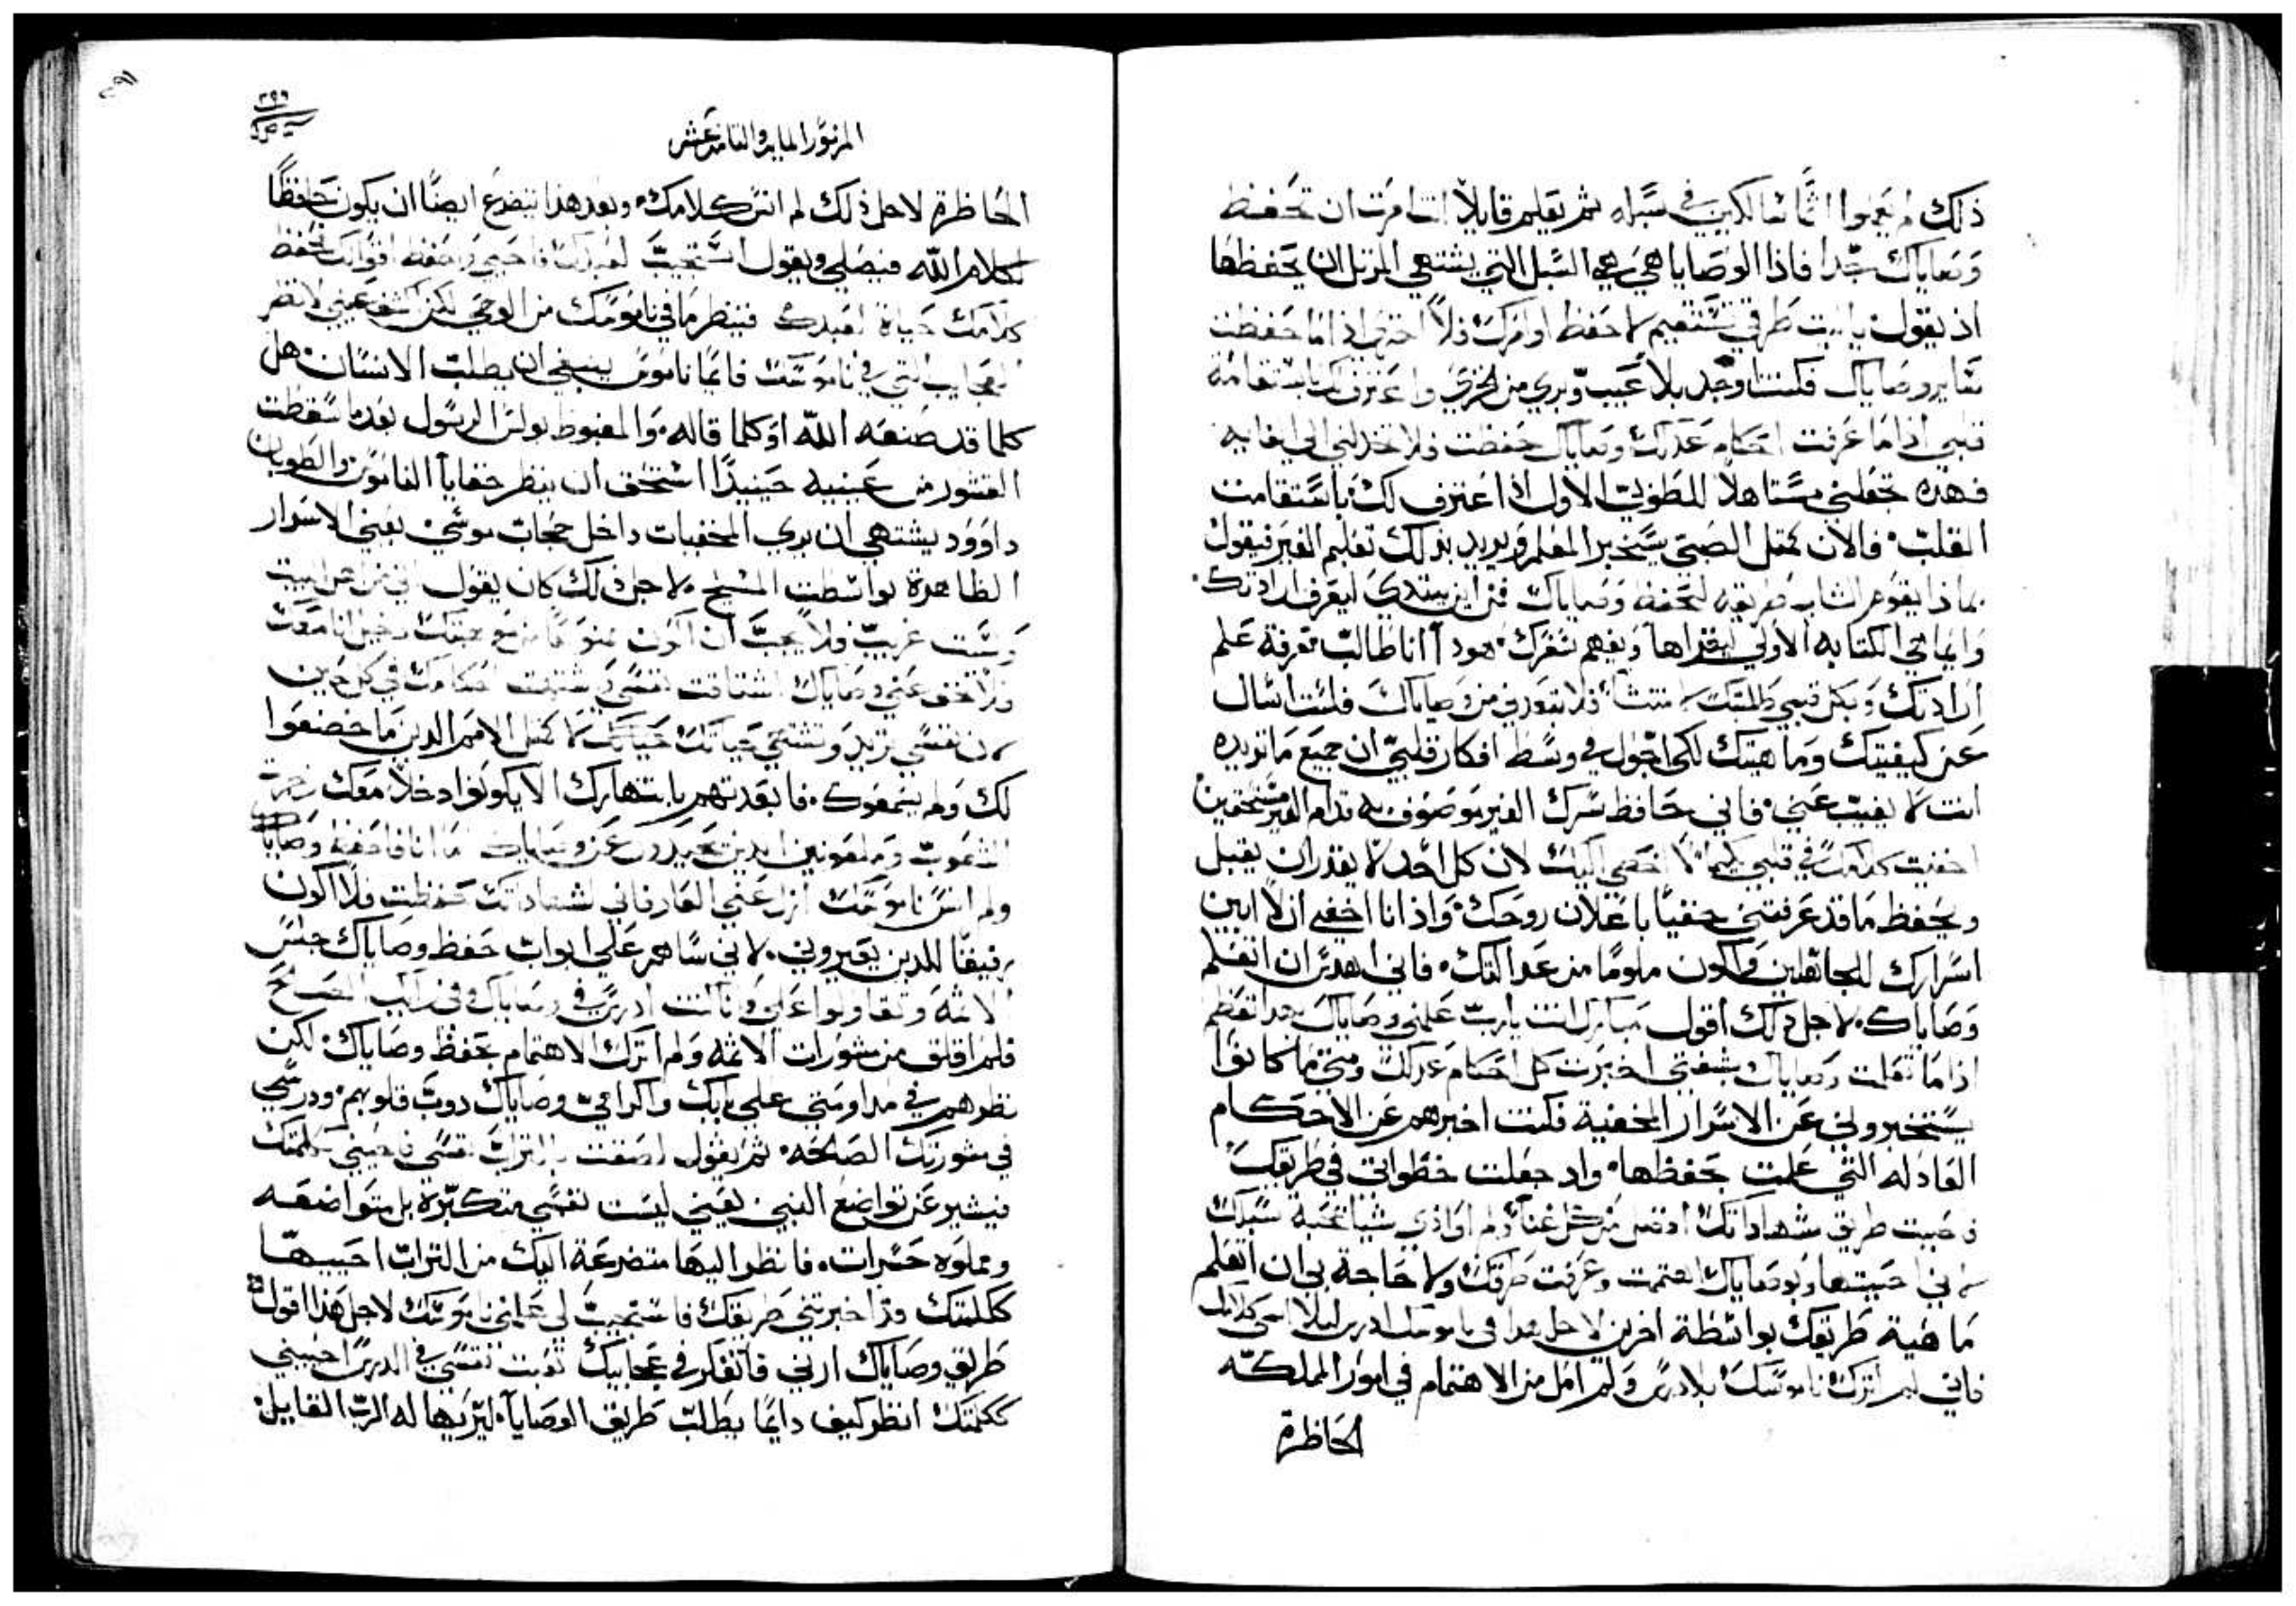 ذلك لم يعملوا اثمًا سالكين في سبله ثم يعلم قايلاً انت امرت ان تحفظ
وصاياك جدا فاذا الوصايا هي هي السبل التي يشتهي المرتل ان يحفظها
اذ يقول يا ليت طرقي تستقيم لاحفظ اوامرك فلا اخزى اذا ما حفظت
ساير وصاياك فكنت اوجد بلا عيب وبري من الخزي واعترف لك باستقامة
قلبي اذا ما عرفت احكام عدلك وصاياك حفظت ولا تخذلني الي الغايه
فهذه تجعلني مستاهلاً للطوبي الاول اذ اعترف لك باستقامت
القلب فالان كمثل الصبي يستخبر المعلم ويريد بذلك تعليم الغير فيقول
بماذا يقوم الشاب طريقه بحفظه وصاياك فمن اين يبتدي ليعرف ارادتك
وايما هي الكتابه الاولي ليقراها ويفهم شعرك هوذا انا طالب معرفة علم
ارادتك وبكل قلبي طلبتك لا تنشا ولا تبعدني من وصاياك فلست اسال
عن كيفيتك وما هيتك لكي اجول في وسط افكار قلبي ان جميع ما تريده
انت لا يغيب عني فاني حافظ سرك الغير موصوف به قدام الغير مستحقين
اخفيت كلامك في قلبي لكيما لا اخطي اليك لان كل احد لا يقدر ان يقبل
ويحفظ ما قد عرفتني خفياً باعلان روحك واذ انا اخفي ان لا ابين
اسرارك للجاهلين واكون ملومًا من عدالتك فاني اهدر ان اتعلم
وصاياك لاجل ذلك اقول مبارك انت يارب علمني وصاياك
اذا ما تعلمت وصاياك بشفتي اخبرت كل احكام عدلك ومتي ما كانوا
يستخبروني عن الاسرار الخفية فكنت اخبرهم عن الاحكام
العادله التي علمت بحفظها واد جعلت خطواتي في طريقك
وحبيت طريق شهاداتك افضل من كل غناء ولم اوازي شيا بمحبة سبلك
لاني احببتها وبوصاياك اهتممت وعرفت طرقك ولا حاجة بي ان اتعلم
ما هية طريقك بواسطة اخرين لاجل هذا في ناموسك ادرس ليلا انسي كلامك
فاني لم اترك ناموسك بلا درس ولم امل من الاهتمام في امور المملكه
الحاظرة
المزمور المايه والثامن عشر
الحاظرة لاجل ذلك لم انس كلامك وبعد هذا يتضرع ايضًا ان يكون حافظًا
لكلام الله فيصلي ويقول استجيب لعبدك فاحيي واحفظ اقوالك لحفظ
كلامك حياة لعبدك فينظر ما في ناموسك من الوحي لكن اكشف عيني لانظر
العجايب التي في ناموسك فايما ناموس ينبغي ان يطلب الانسان هل
كلما قد صنعه الله او كلما قاله والمغبوط بولس الرسول بعدما سقطت
القشور من عينيه حينيذًا استحق ان ينظر خفايا القانون والطوبان
داوود يشتهي ان يري المخفيات داخل حجات موسي يعني الاسرار
الظاهرة بواسطت المسيح لاجل ذلك كان يقول
ولست غريب فلا يجب ان اكون ممنوعًا من محبتك دخيل انا معك
ولا تخف عني وصاياك اشتاقت نفسي وشتهت احكامك في كل حين
لان نفسي تريد وتشتهي حياتك حياتك لا كمثل الامم الدين ما خضعوا
لك ولم يسمعوك فابعدتهم بانتهارك الا يكونوا دخلا معك زجرت
الشعوب وملعونين الدين يحيدون عن وصاياك اما انا فاحفظ وصاياك
ولم انس ناموسك ازل عني العار فاني لشهاداتك حفظت فلا اكون
رفيقًا للدين يعيروني لاني ساهر علي ابواب حفظ وصاياك جلس
الاثمه وتقاولوا علي وانا كنت ادرس في وصاياك وفي
فلم اقلق من مشورات الاثمه ولم اترك الاهتمام بحفظ وصاياك لكن
نظرهم في مداومتي علي بابك واكرامي وصاياك دوب قلوبهم ودرسي
في مشورتك الصالحه ثم يقول لصقت بالتراب نفسي فاحيني ككلمتك
فيشير عن تواضع النبي يعني ليست نفسي متكبرة بل متواضعه
ومملوه حسرات فانظر اليها متضرعة اليك من التراب احييها
ككلمتك وقد اخبرتني طريقك فاستجيب لي علمني ناموسك لاجل هذا اقول
طريق وصاياك ارني فاتفكر في عجايبك نفسي في الدرس احييني
ككلمتك انظر كيف دايمًا يطلب طريق الوصايا ليريها له الرب القايل